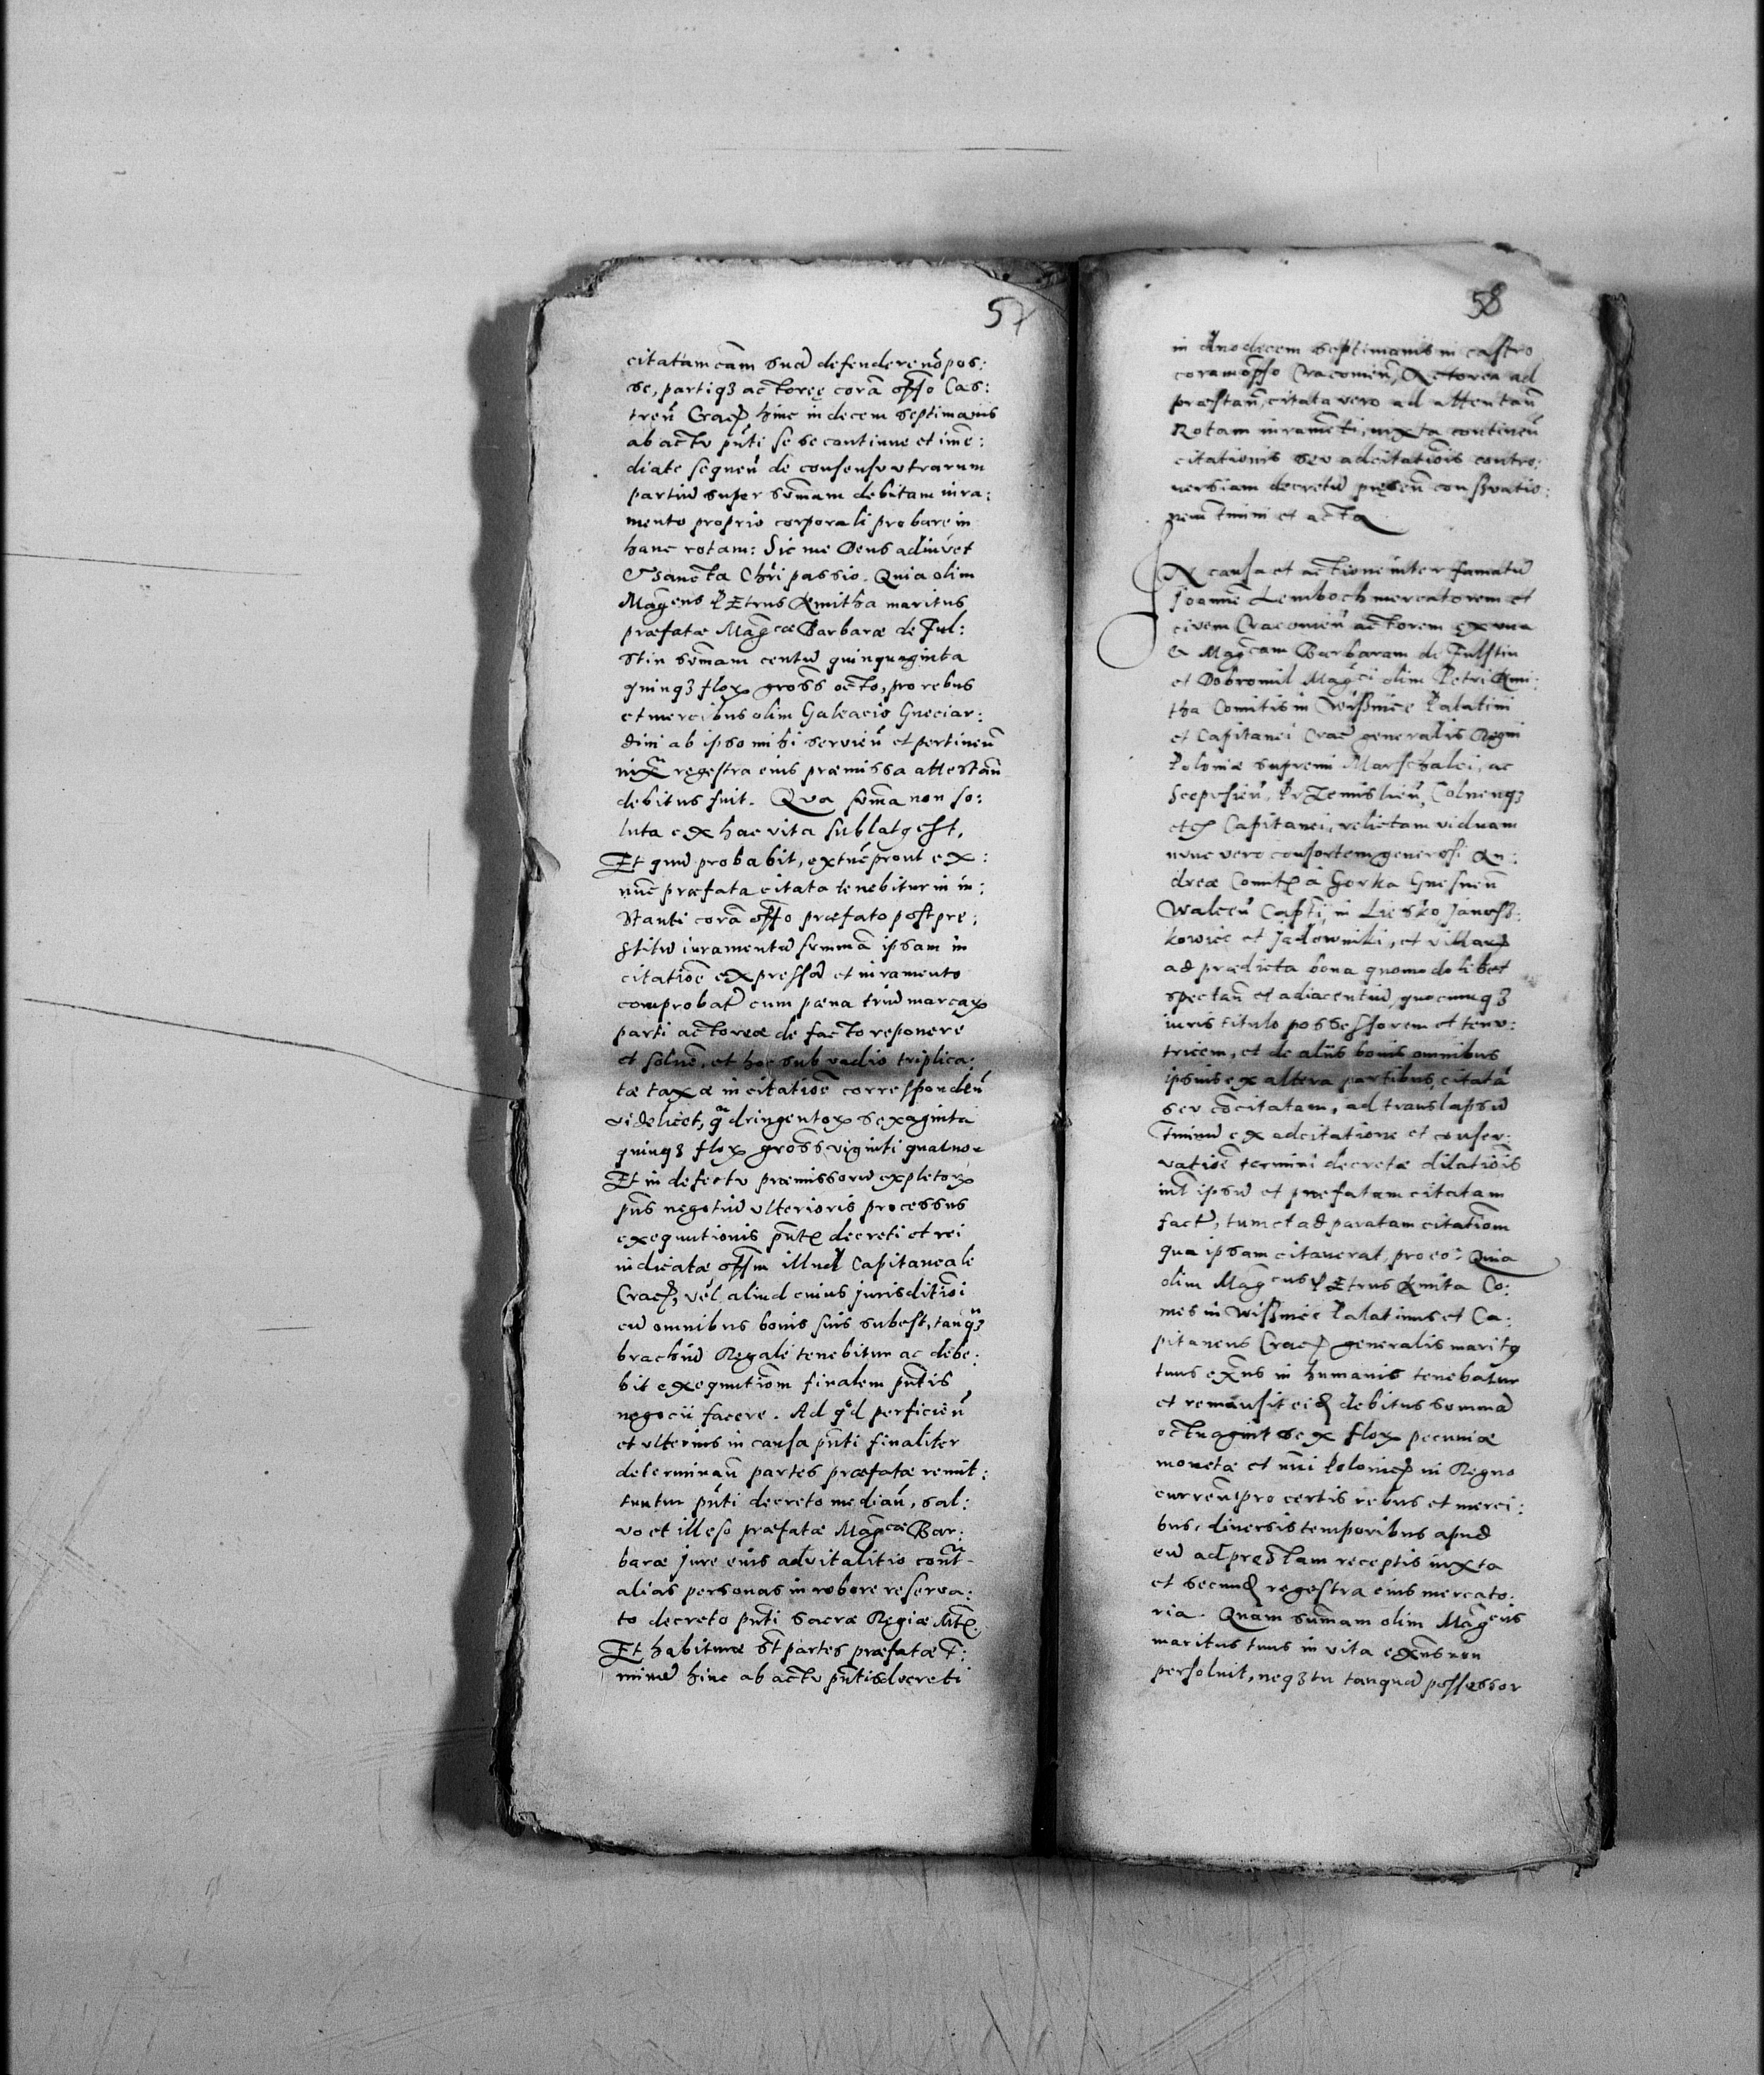 57
citatam cām suā defendere nō pos:
se, partiqȝ actoreę corā offo Cas:
treñ Crac̄ hinc in decem septimanis
ab actu pñti se se continue et ime:
diate sequeñ de consensu utrarum
partiū super sum̄am debitam iura:
mento proprio corporali probare in
hanc rotam: Sic me Deus adiuvet
Et sancta Chri passio. Quia olim
Magcus PEtrus Kmitha maritus
præfatæ Magcæ Barbaræ de Ful:
stin sum̄am centū quinquaginta
quinqȝ flox gross octo, pro rebus
et mercibus olim Galeacio Gucciar:
dini ab ipso mihi servieñ et pertineñ
iuxta regestra eius præmissa attestañ
debitus fuit. Qua sum̄a non so:
luta ex hac vita sublatꝯ est.
Et quū probabit, extūc prout ex:
nūc præfata citata tenebitur in in:
stanti corā offo præfato post pre:
stitū iuramentū summā ipsam in
citatiōe expressā et iuramento
comprobatā cum pæna triū marcax
parti actoreæ de facto reponere
et solue, et hoc sub vadio triplica:
tæ taxæ in citatiōe correspondeñ
videlicet, qadringentox sexaginta
quinqȝ flox gross viginti quatuor
Et in defectu præmissorū expletox
pñs negotiū ulterioris processus
exequutionis pñtꝭ decreti et rei
iudicatæ offm illud Capitaneale
Crac̄, vel aliud cuius jurisditiōi
cū omnibus bonis suis subest, tanqȝ
brachiū Regale tenebitur ac debe:
bit exequutiom finalem pñtis
negocii facere. Ad qd perficieñ
et ulterius in causa pñti finaliter
determinañ partes præfatæ remit:
tuntur pñti decreto mediañ, sal:
vo et illeso præfatæ Magcæ Bar:
baræ jure eius advitalitio cont
alias personas in robore reserva:
to decreto pñti sacræ Regiæ Mtꝭ.
Et habituræ st partes præfatæ t:
minū hinc ab actu pñtis decreti
58
in duodecem septimanis in castro
coram offo Cracovieñ, Actorea ad
præstañ, citata vero ad attentañ
Rotam iuramēti, iuxta contineñ
citationis seu adcitatiōis contro:
versiam decretū preseñ conservatio:
nem tmini et acta
IN causa et actione inter famatū
Joannē Lemboch mercatorem et
civem Cracovieñ actorem ex una
& Magcam Barbaram de Fulstin
et Dobromil Magci olim Petri Kmi:
tha Comitis in Wissnice Palatini
et Capitanei Crac̄ generalis Regni
Poloniæ supremi Marschalci, ac
Scepusieñ, PrZemislieñ, Colnenqȝ
etc Capitanei, relictam viduam
nunc vero consortem generosi An:
dreæ Comitꝭ a Gorka Gnesneñ
Walceñ Capti, in Liesko, Janoss:
kowice et Jadowniki, et villax
ad prædicta bona quomodolibet
spectañ et adiacentiū, quocumqȝ
iuris titulo possessorem et tenu:
tricem, et de aliis bonis omnibus
ipsius ex altera partibus, citatā
seu cōcitatam, ad translapsū
Tminū ex adcitatione et conser:
vatiōe termini decretæ dilatiōis
int ipsū et præfatam citatam
factæ, tum et ad paratam citatiom
qua ipsam citaverat, pro eo: Quia
olim Magcus PEtrus Kmita Co:
mes in Wissnice Palatinus et Ca:
pitaneus Crac̄ generalis maritꝯ
tuus exñs in humanis tenebatur
et remansit eid debitus sommā
octuagint sex flox pecuniæ
monetæ et nūi Polonic̄ in Regno
curreñ pro certis rebus et merci:
bus, diversis temporibus apud
eū ad pređtam receptis iuxta
et secund regestra eius mercato:
ria. Quam sum̄am olim Magcus
maritus tuus in vita exñs non
persoluit, neqȝ tu tanquā possessor